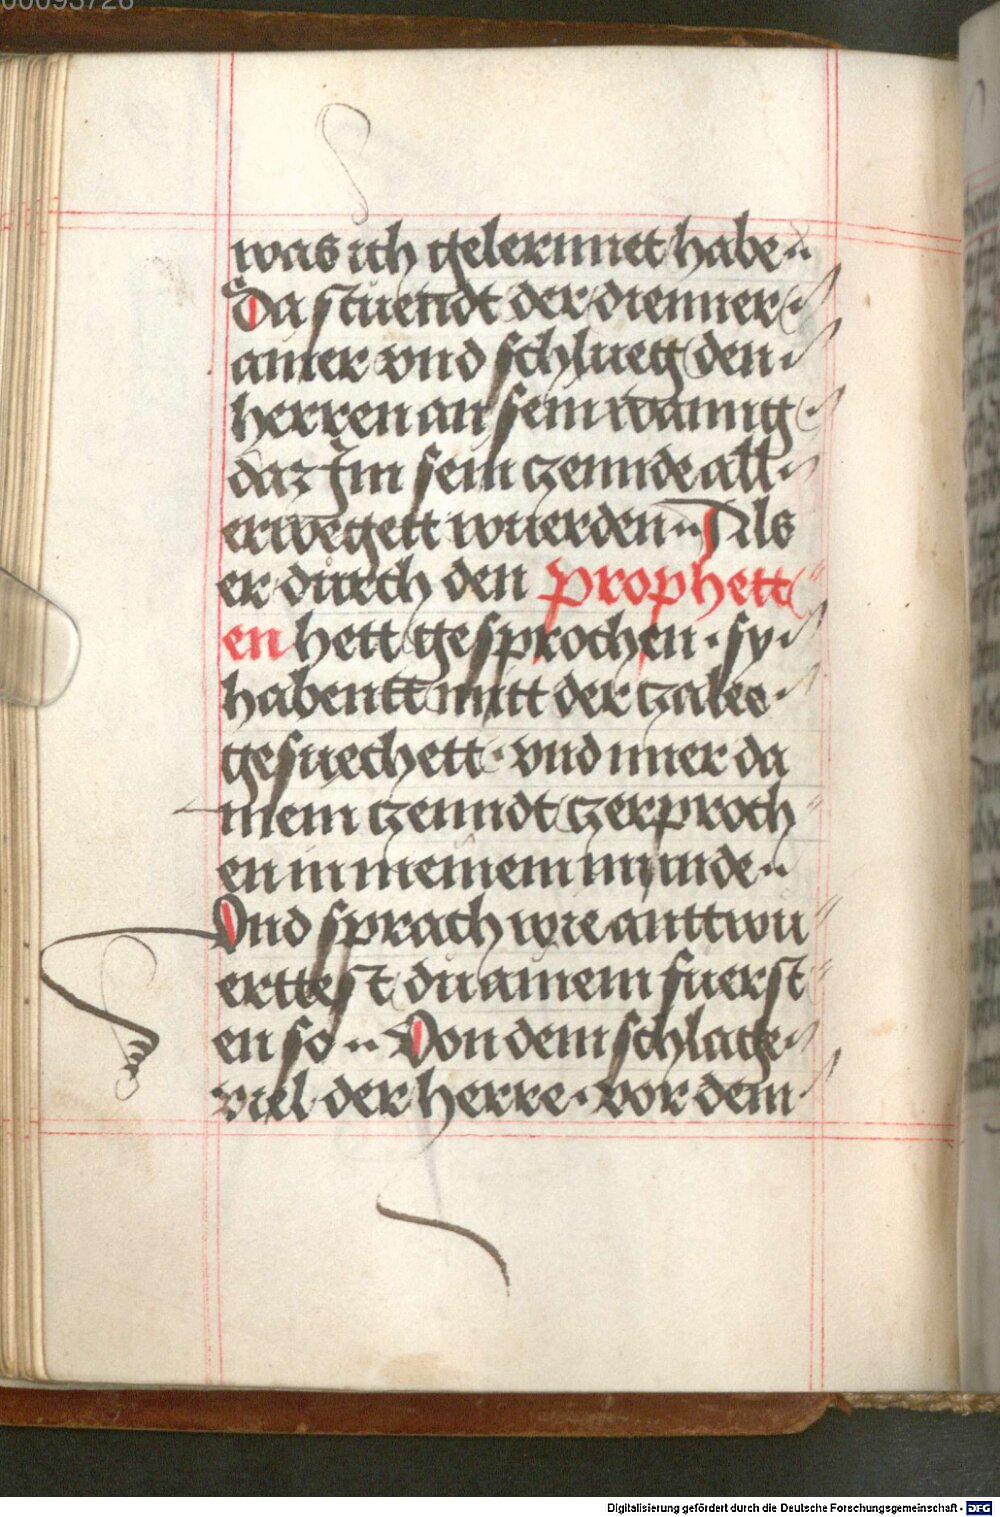 00093726
was ich gelernnet habe ..
Da stuendt der dienner
ainer vnd schlueg den
herren an sein wanng
daz Im sein czennde all
erwegett wuerden .. Als
er durch den prophett
en hett gesprochen · sy
habentt mitt der gallee
gesuechett · vnd mer da
mein czenndt czerproch
en in meinem munde ..
Vnd sprach wie anttwu
erttest du ainem fuerst
en so .. Von dem schlage
viel der herre · vor dem
Digitalisierung gefördert durch die Deutsche Forschungsgemeinschaft - DFG